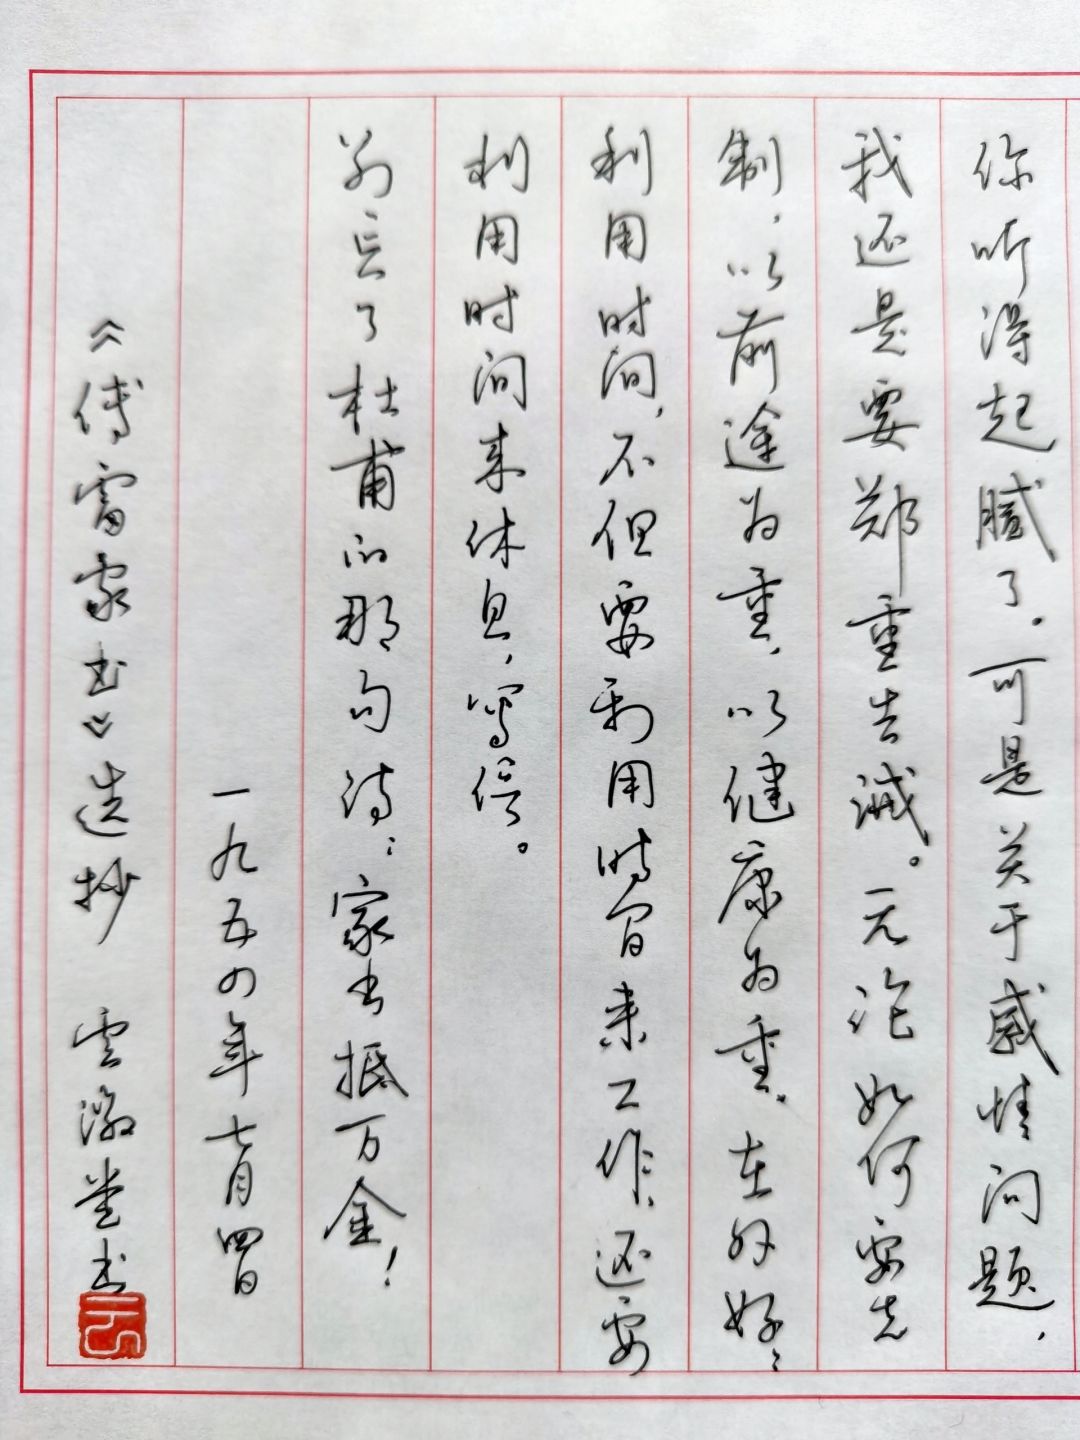 你听得起腻了。可是关于感情问题，
我还是要郑重告诫。无论如何要克
制，以前途为重，以健康为重。在外好好
利用时间，不但要利用时间来工作，还要
利用时间来休息，写信。
别忘了杜甫的那句诗：家书抵万金！
一九五四年七月四日
《傅雷家书》选抄 云澂堂书